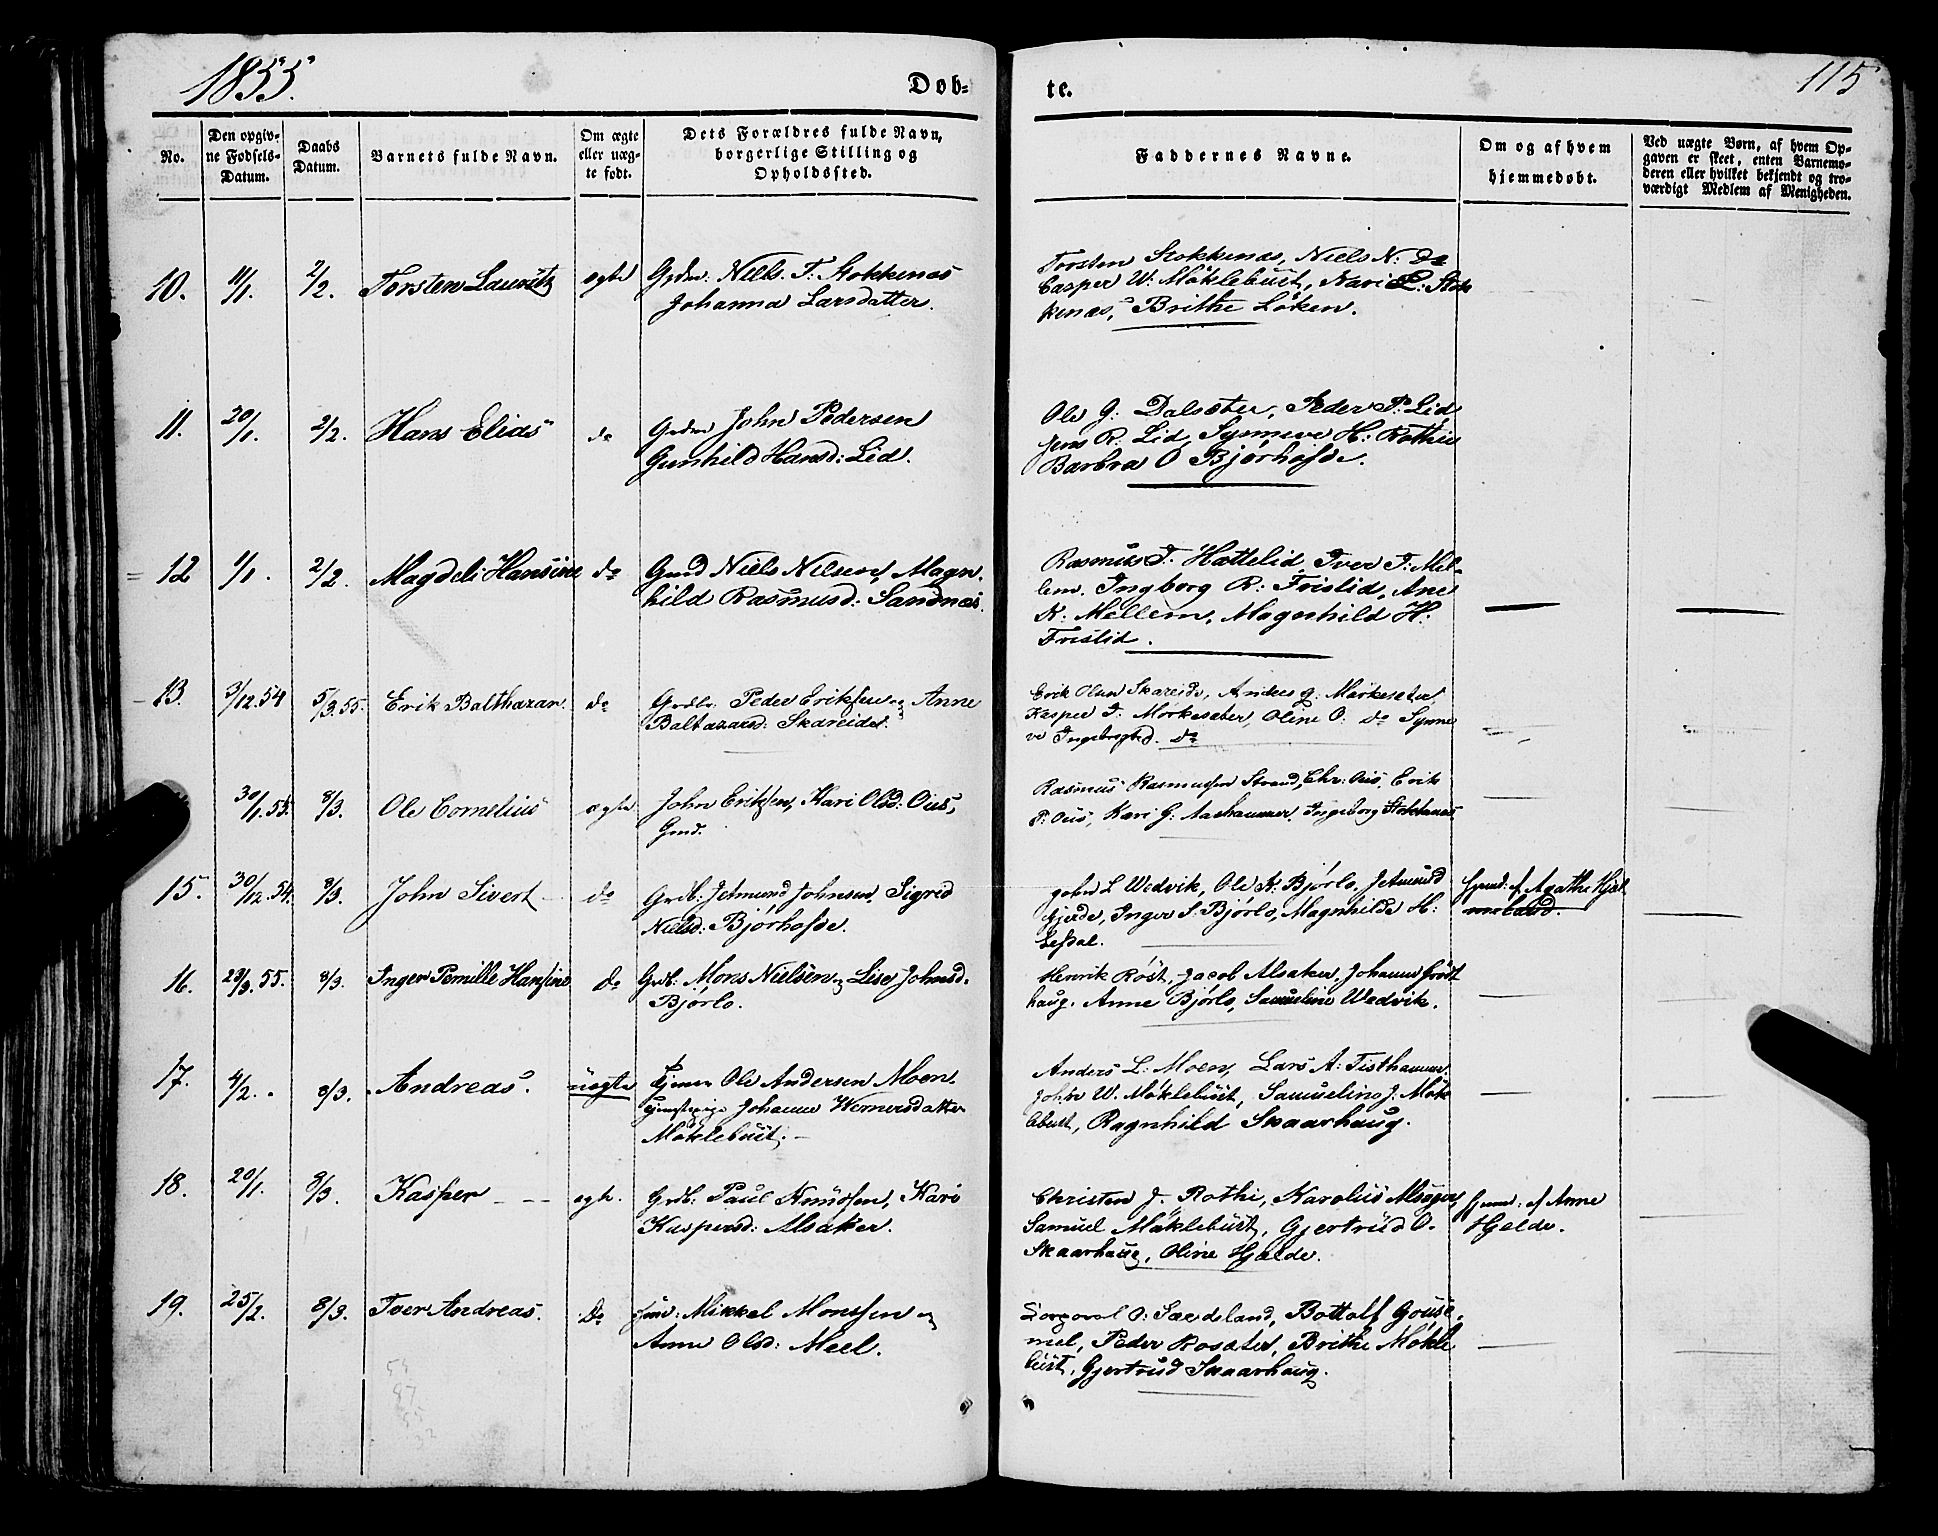 1855.
Døb-
te.
115
No.
Den opgiv-
ne Fødsels-
Datum.
Daabs
Datum.
Barnets fulde Navn.
Om ægte
eller uæg-
te født.
Dets Forældres fulde Navn,
borgerlige Stilling og
Opholdssted.
Faddernes Navne.
Om og af hvem
hjemmedøbt.
Ved uægte Børn, af hvem Op-
gaven er skeet, enten Barnemo-
deren eller hvilket bekjendt og tro-
værdigt Medlem af Menigheden.
10. 11/1. 2/2. Torsten Lauritz ægte
Niels T: Stokkenæs
Johanna Larsdatter.
Torsten Stokkenæs, Niels N: do
Casper W: Möklebust, Kari L: Stok
kenæs, Brithe Löken.
11. 20/1. 2/2. Hans Elias do
John Pedersen
Gunhild Hansd: Lid.
Ole J: Dalsæter, Peder P: Lid
Jens R: Lid, Synneve H: Rothie
Barbra O Bjørhofde.
12 1/1. 2/2. Magdeli Hansine do
Gmd Niels Nilsen, Magn-
hild Rasmusd: Sandnæs.
Rasmus T. Hattelid, Iver I: Mel-
lem. Ingborg R: Fristid, Ane
K: Mellem, Magnhild H:
Fristid.
13. 3/12.54 5/3.55. Erik Balthazar. do
Peder Eriksen og Anne
Baltazarsd: Skareidet.
Erik Olsen Skareide, Anders J: Mørkesæter
Kasper J. Mörkesæter, Oline O: do Synne
ve Ingebrigtsd. do
30/1.55. 8/3. Ole Cornelius ægte
John Eriksen, Kari Olsd: Ous,
Gmd.
Rasmus Rasmussen Strand, Chr: Ous, Erik
P: Ous, Kari G: Aashammer. Ingeborg Stokkenæs
15. 30/12.54. 8/3. John Sivert do
Grdb: Jetmund Johnsen, Sigrid
Nielsd: Bjørhofde.
John L Wedvik, Ole A: Bjørlo, Jetmund
Gjerde, Inger S: Bjørlo, Magnhilde H:
Lefdal.
hjemd: af Agathe Hjel
meland.
16. 23/2.55. 8/3. Inger Pernille Hansine do
Grdb: Mons Nielsen og Lise Johnsd.
Bjørlo.
Henrik Röst, Jacob Alsaker, Johannes Gröst
haug. Anne Bjørlo, Samueline Wedvik.
17. 4/2.. 8/3. Andreas. uægte
Ole Andersen Moen.
Johanne Wernersdatter
Möklebust.
Anders L: Moen, Lars A: Tisthammer.
John W. Möklebust, Samueline J. Mök
lebust, Ragnhild Skaarhaug.
18. 20/1. 8/3. Kasper ægte.
Grdb: Paul Knudsen, Kari
Kaspersd: Alsaker.
Christen J. Rothi, Karolus Alsager,
Samuel Möklebust, Gjertrud O.
Skaarhaug, Oline Hjelde.
hjemd: af Anne
Hjelde.
19. 25/2. 8/3. Iver Andreas. Do
Mikkel Monssen og
Anne Olsd: Meel.
O: Sædeland, Bottolf Gouse-
mel, Peder Rosæter, Brithe Mökle
bust, Gjertrud Skaarhaug.